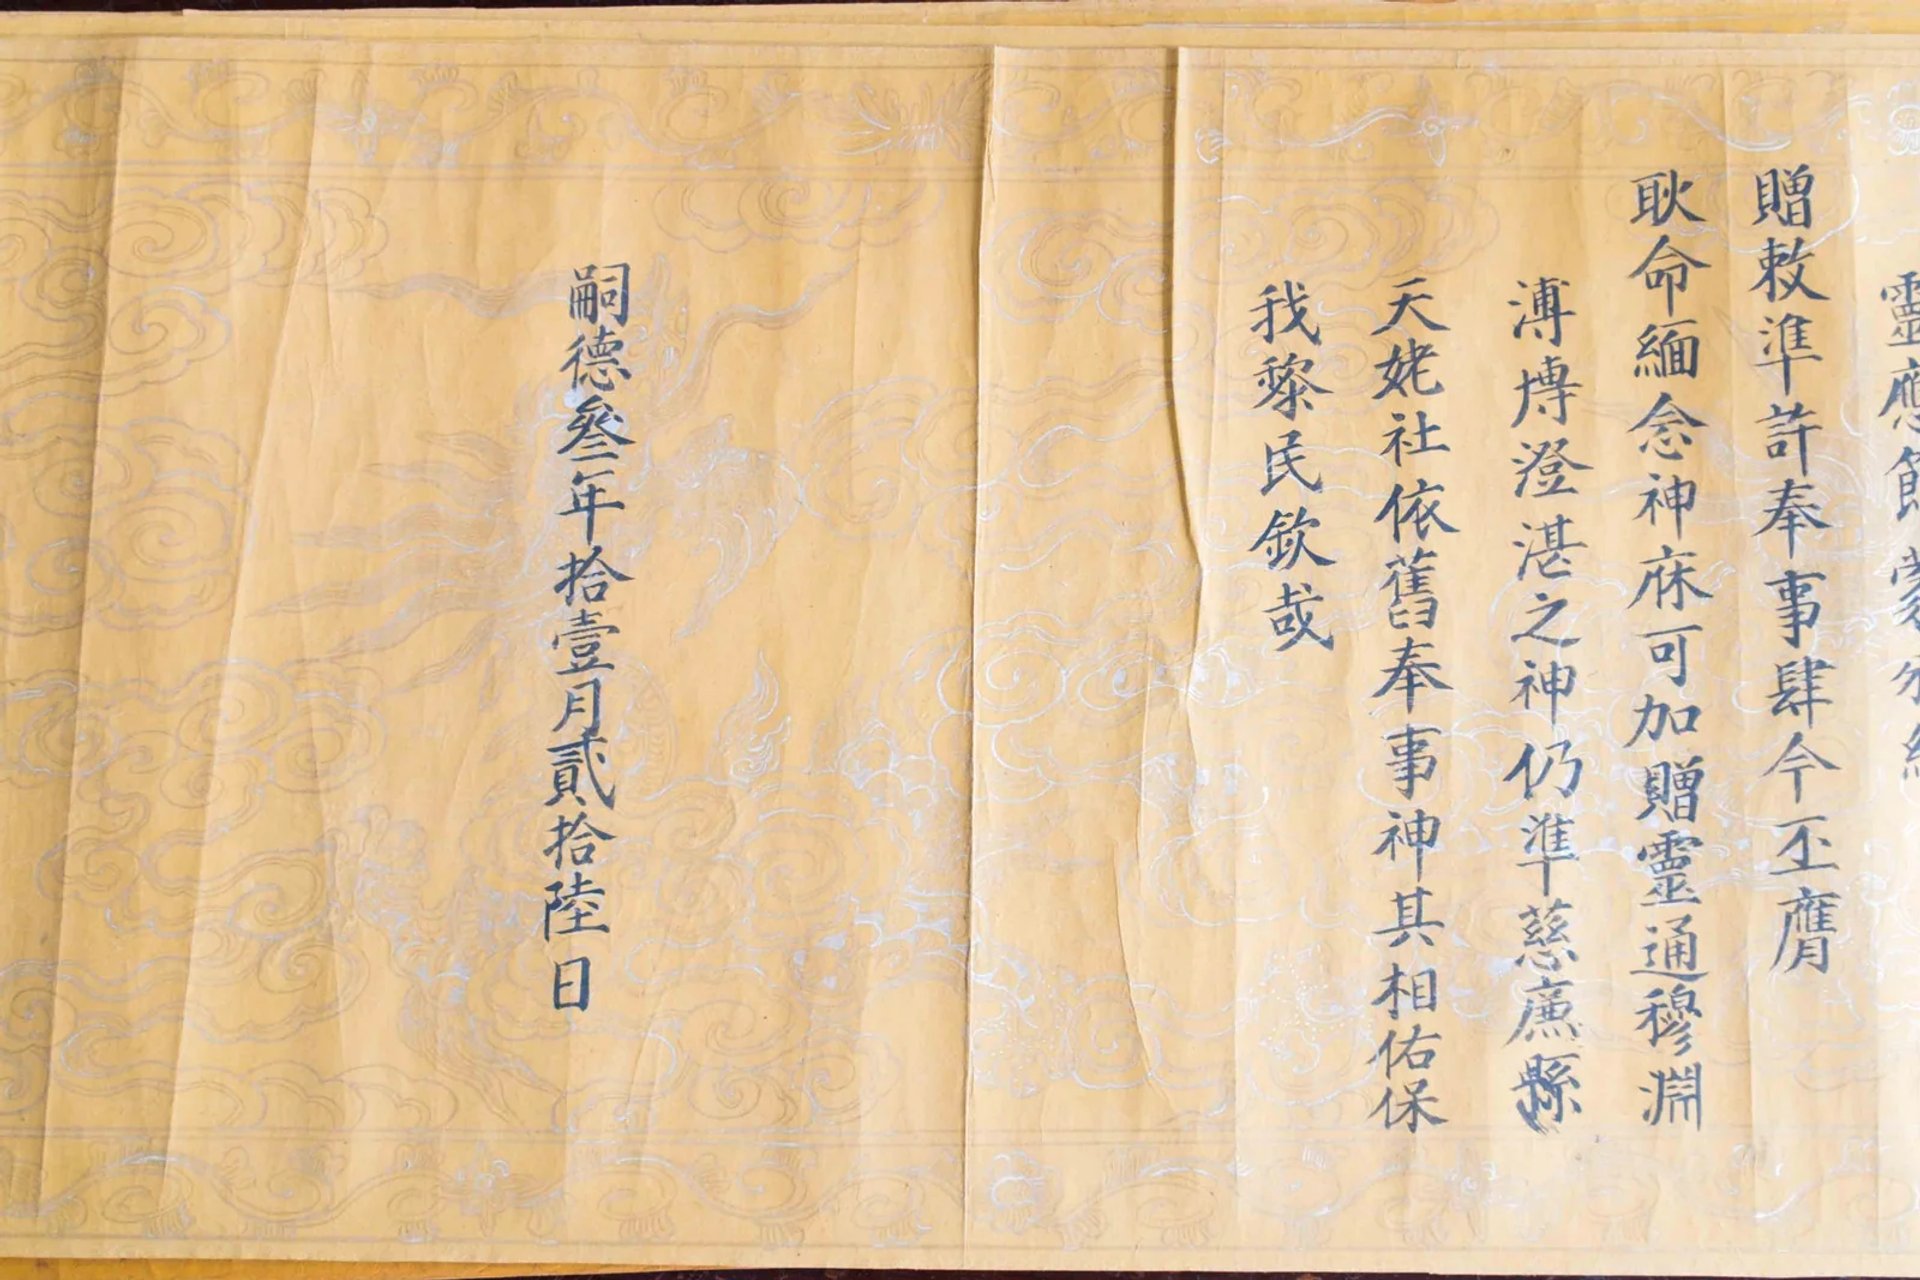 靈應節蒙
贈敕準許奉事肆今丕膺
耿命緬念神庥可加贈靈通穆淵
溥博澄湛之神仍準慈廉縣
天姥社依舊奉事神其相佑保
我黎民欽哉
嗣德叄年拾壹月貳拾陸日